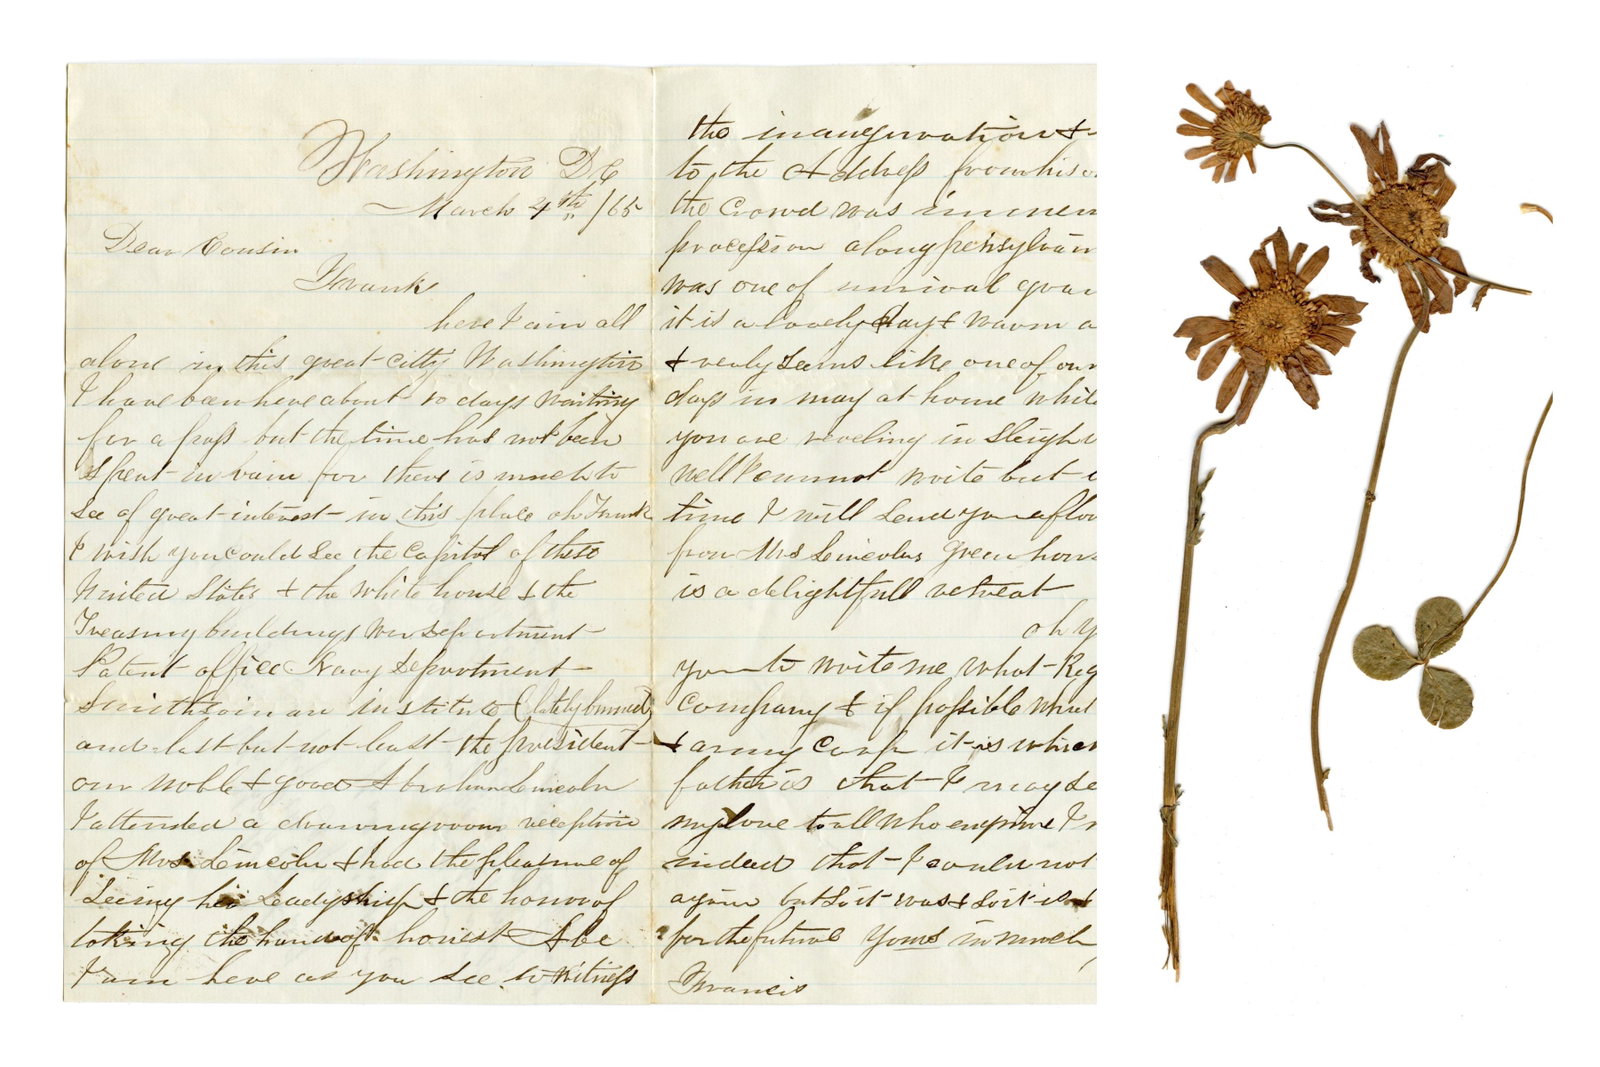 Washington D.C
March 4th /65
Dear Cousin
Frank
here I am all
alone in this great citty Washington
I have been here about 10 days waiting
for a pass but the time has not been
spent in vain for there is much to
see of great interest in this place oh Frank
I wish you could see the Capitol of these
United States & the White house & the
Treasury buildings War Department
Patent office Navy Department
Smithsoinian institute (lately burned)
and last but not least the president
our noble & good Abraham Lincoln
I attended a drawing room reception
of Mrs. Lincoln & had the pleasure of
Seeing her Leadyship & the honor of
taking the hand of honest Abe
I am here as you see to witness
the inaugeruation &
to the Address from his
the Crowd was immen
procession along pensylvan
was one of unrival gran
it is a lovely day & warm a
& realy seems like one of our
days in may at home while
you are reveling in sleigh
well I cannot write but
time I will send you a flow
from Mrs Lincolns green hous
is a delightfull retreat
oh y
you to write me what Reg
company & if possible what
& army Corp it is which
father is that I may se
my love to all who enquire
indeed that I could not
again but so it was & so it is &
for the future yours in much
Francis